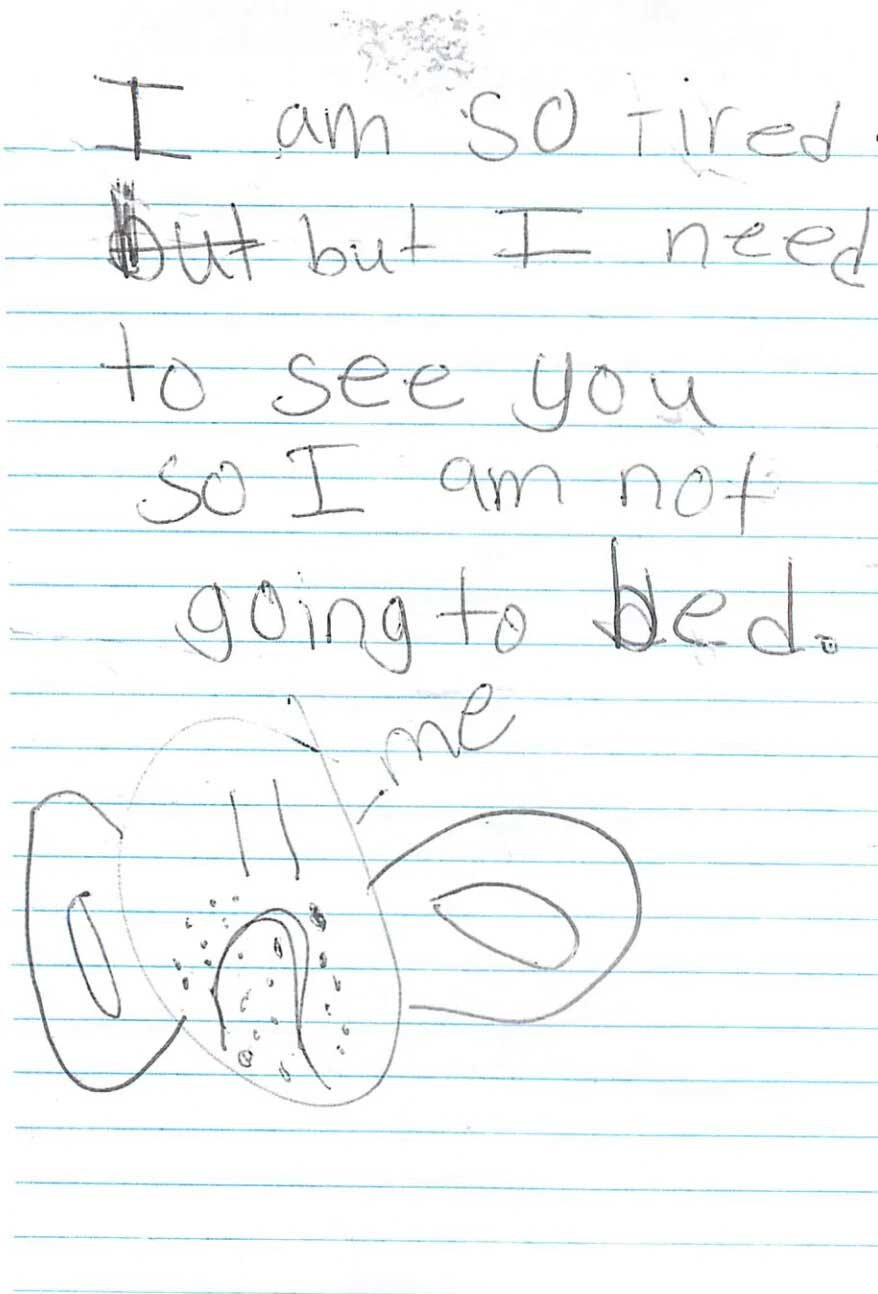 I am so tired.
but but I need
to see you
so I am not
going to bed.
me